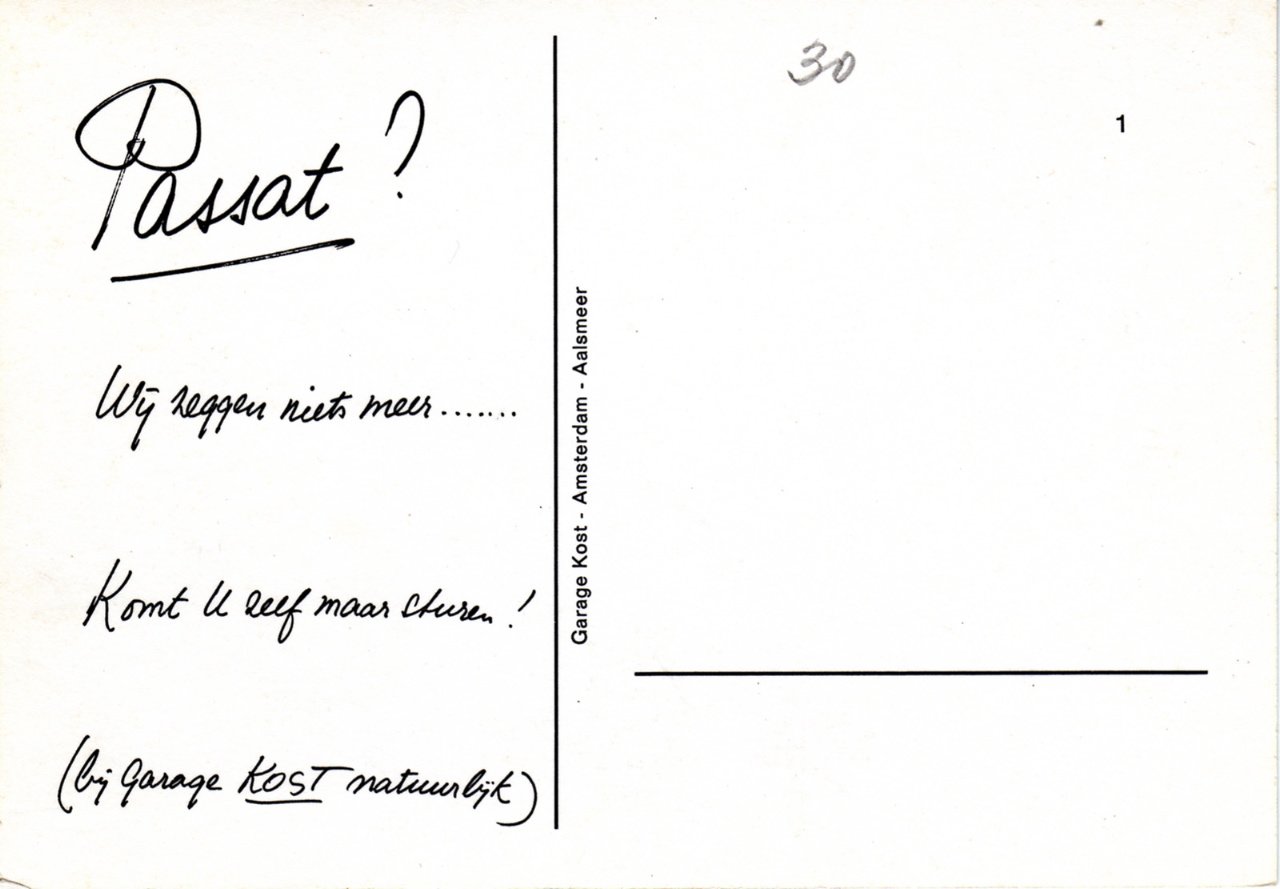 Passat?
Wij zeggen niets meer.......
Komt U zelf maar sturen!
(bij Garage KOST natuurlijk)
Garage Kost - Amsterdam - Aalsmeer
30
1